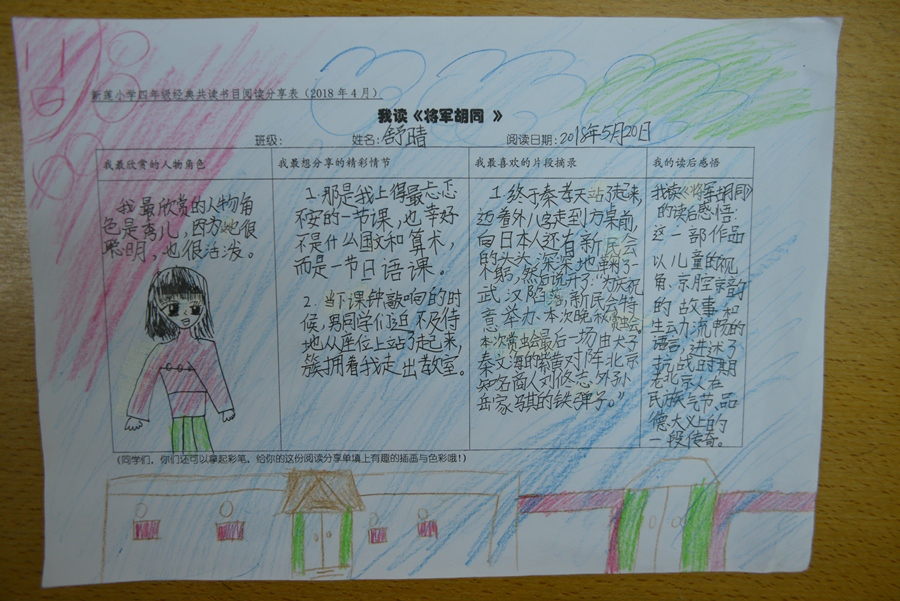 新莲小学四年级经典共读书目阅读分享表（2018年4月）
我读《将军胡同 》
班级：
姓名：舒晴
阅读日期：2018年5月20日
我最欣赏的人物角色
我最欣赏的人物角
色是秀儿，因为她很
聪明，也很活泼。
我最想分享的精彩情节
1.那是我上得最忐忑
不安的一节课，也幸好
不是什么国文和算术，
而是一节日语课。
2.当下课钟敲响的时
候，男同学们迫不及待
地从座位上站了起来，
簇拥着我走出教室。
我最喜欢的片段摘录
1.终于秦孝天站了起来，
迈着外八字走到方桌前，
向日本人还有新民会
的头头，深深地鞠了一
个躬，然后说开了：为庆祝
武汉陷落，新民会特
意举办本次晚秋赏虫会
本次赏虫会最后一场，由犬子
秦文海的紫黄对阵北京
知名商人刘修志外孙
岳家马骐的铁弹子。”
我的读后感悟
我读《将军胡同》
的读后感悟：
这一部作品
以儿童的视
角、京腔京韵
的故事和
生动流畅的
语言，讲述了
抗战时期
老北京人在
民族气节、品
德大义上的
一段传奇。
(同学们，你们还可以拿起彩笔，给你的这份阅读分享单填上有趣的插画与色彩哦！)